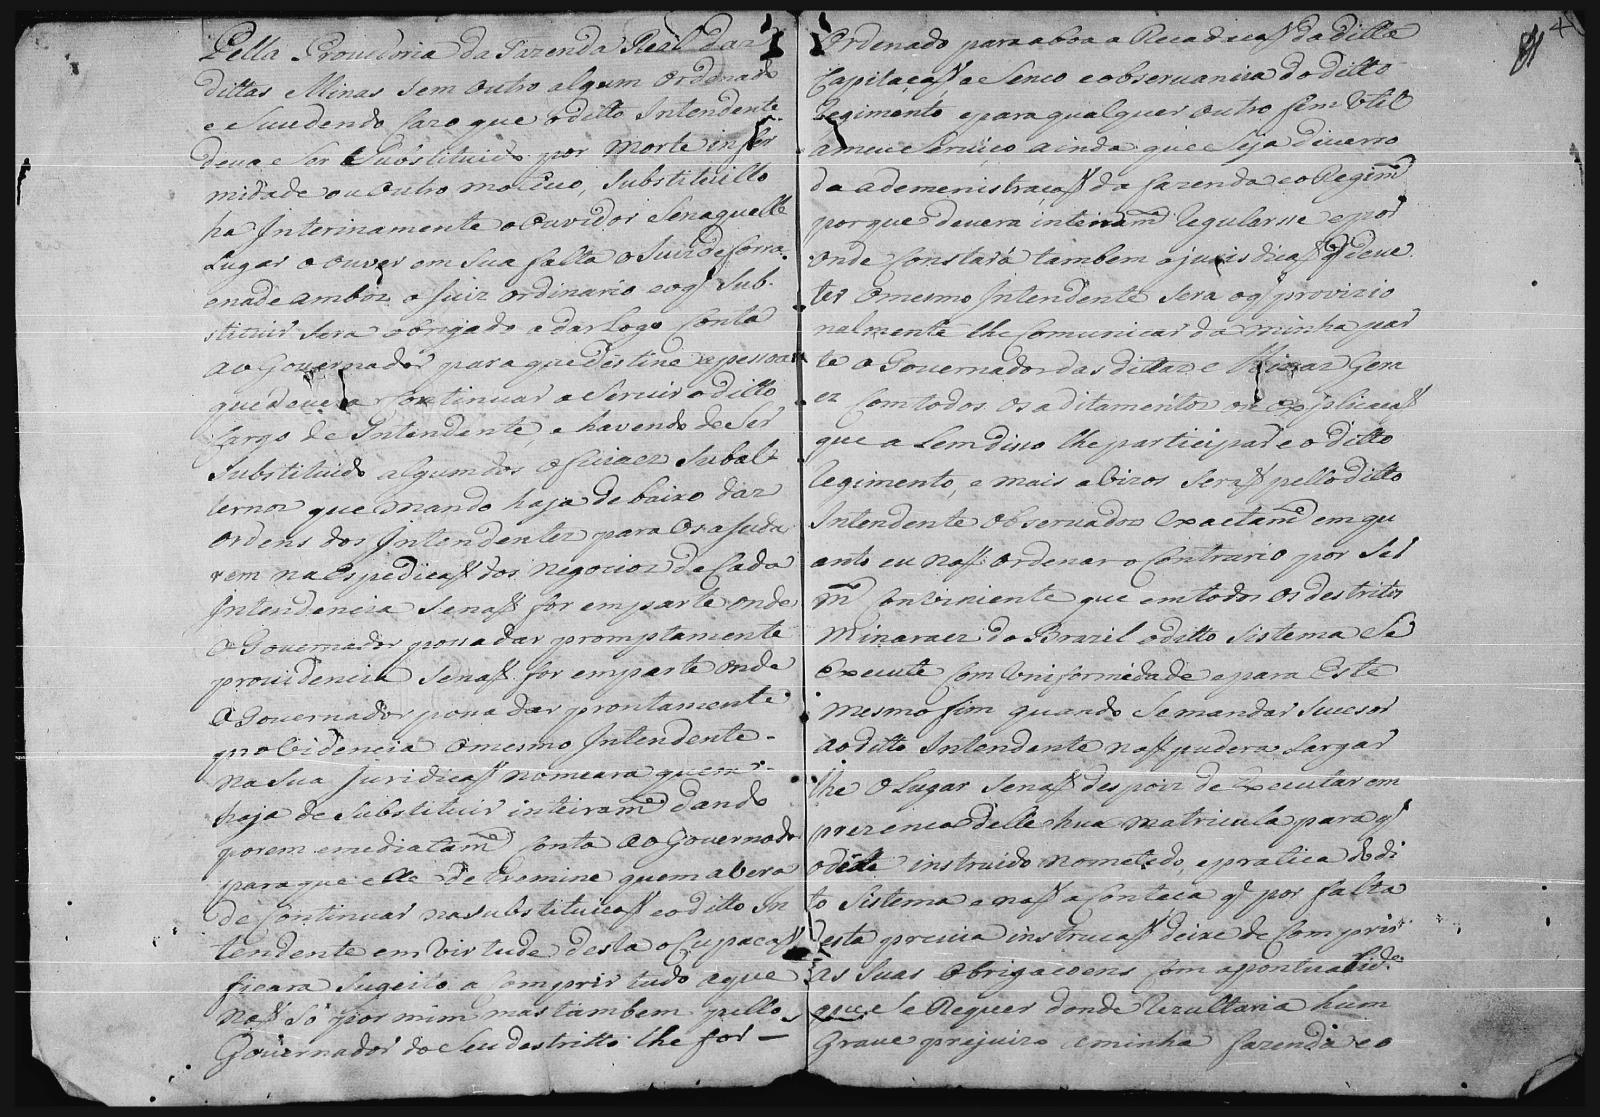 Pella Provedoria da Fazenda Real das
dittas Minas sem outro algum ordenado
e Sucedendo cazo que o ditto Intendente
deva Ser Substituido por morte infer
midade ou outro motivo, Substituillo
ha Interinamente o Ouvidor e Senaquelle
Lugar o ouver em Sua falta o Juiz de fora
enade ambos, o Juiz ordinario eoq̃ Sub-
stituir Sera obrigado a dar Logo Conta
ao Governador para que destine a pessoa
que devera Continuar a Servir o ditto
Cargo de Intendente, e havendo de Ser
Substituido algum dos oficiaes Subal-
ternos que mando haja de baixo das
ordens dos Intendentes para os ajuda
rem na Espediçaõ dos negocios de Cada
Intendencia Senaõ for em parte onde
o Governador possa dar promptamente
providencia Senaõ for emparte onde
o Governador possa dar prontamente
probidencia o mesmo Intendente
na Sua Juridicaõ nomeara quem
haja de Substituir inteiram.e dando
porem emediatam.e Conta ao Governado
para que elle detremine quem abera
de Continuar na substituicaõ e o ditto In
tendente em Virtude desta oCupacaõ
ficara Sugeito a Comprir tudo aque
naõ Só por mim mas tambem pello
Governador do Seu destritto lhe for
Ordenado para aboa aRecadacaõ da ditta
Capitaçaõ, e Senco e observancia do ditto
Regimento e para qualquer outro fim Util
a meu Serviço ainda que Seja diverso
da ademenistraçaõ da fazenda e o Regim.to
porque devera inteiram.e Regularsse e por
onde Constará tambem a jurisdicaõ q̃ deve
ter o mesmo Intendente Sera oq̃ provizio
nalmente lhe Comunicar da minha par
te o Governador das dittas e Minas Gera
es Com todos os aditamentos ou explicacaõ
que a Lem disso lhe participar e o ditto
Regimento, e mais abizos Seraõ pello ditto
Intendente observados exactam.e em qu
anto eu naõ ordenar o Contrario por Ser
m.to Conviniente que em todos os destritos
Minaraes do Brazil o ditto Sistema Se
execute Com Uniformidade e para Este
mesmo fim quando Se mandar Sucesor
ao ditto Intendente naõ pudera Largar
lhe o Lugar Senaõ despois de Executar em
prezenca delle hua matricula para q̃
o deixe instruido no metodo, e pratica do di
to Sistema e naõ aConteça q̃ por falta
desta previa instrucaõ deixe de Comprir
as Suas obrigacoens Com a pontualid.e
que Se Requer donde Rezultaria hum
Grave prejuizo a minha fazenda e o